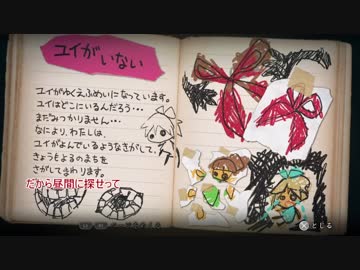 ユイがいない
ユイがゆくえふめいになっています。
ユイはどこにいるんだろう・・・
まだみつかりません・・・
なにより、わたしは、
ユイがよんでいるようなきがして、
きょうもよるのまちを
さがしてまわります。
だから昼間に探せって
とじる